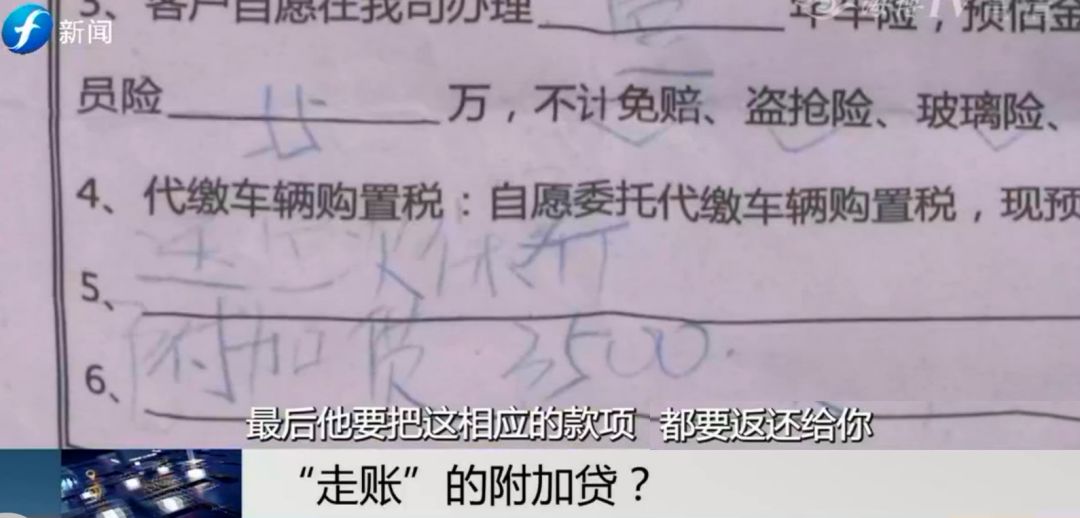 新闻
3、客户自愿在我司办理 壹 年车险，预估金
员险 5 万，不计免赔、盗抢险、玻璃险、
4、代缴车辆购置税：自愿委托代缴车辆购置税，现预
5、
6、附加费 3500.
最后他要把这相应的款项 都要返还给你
“走账”的附加贷？